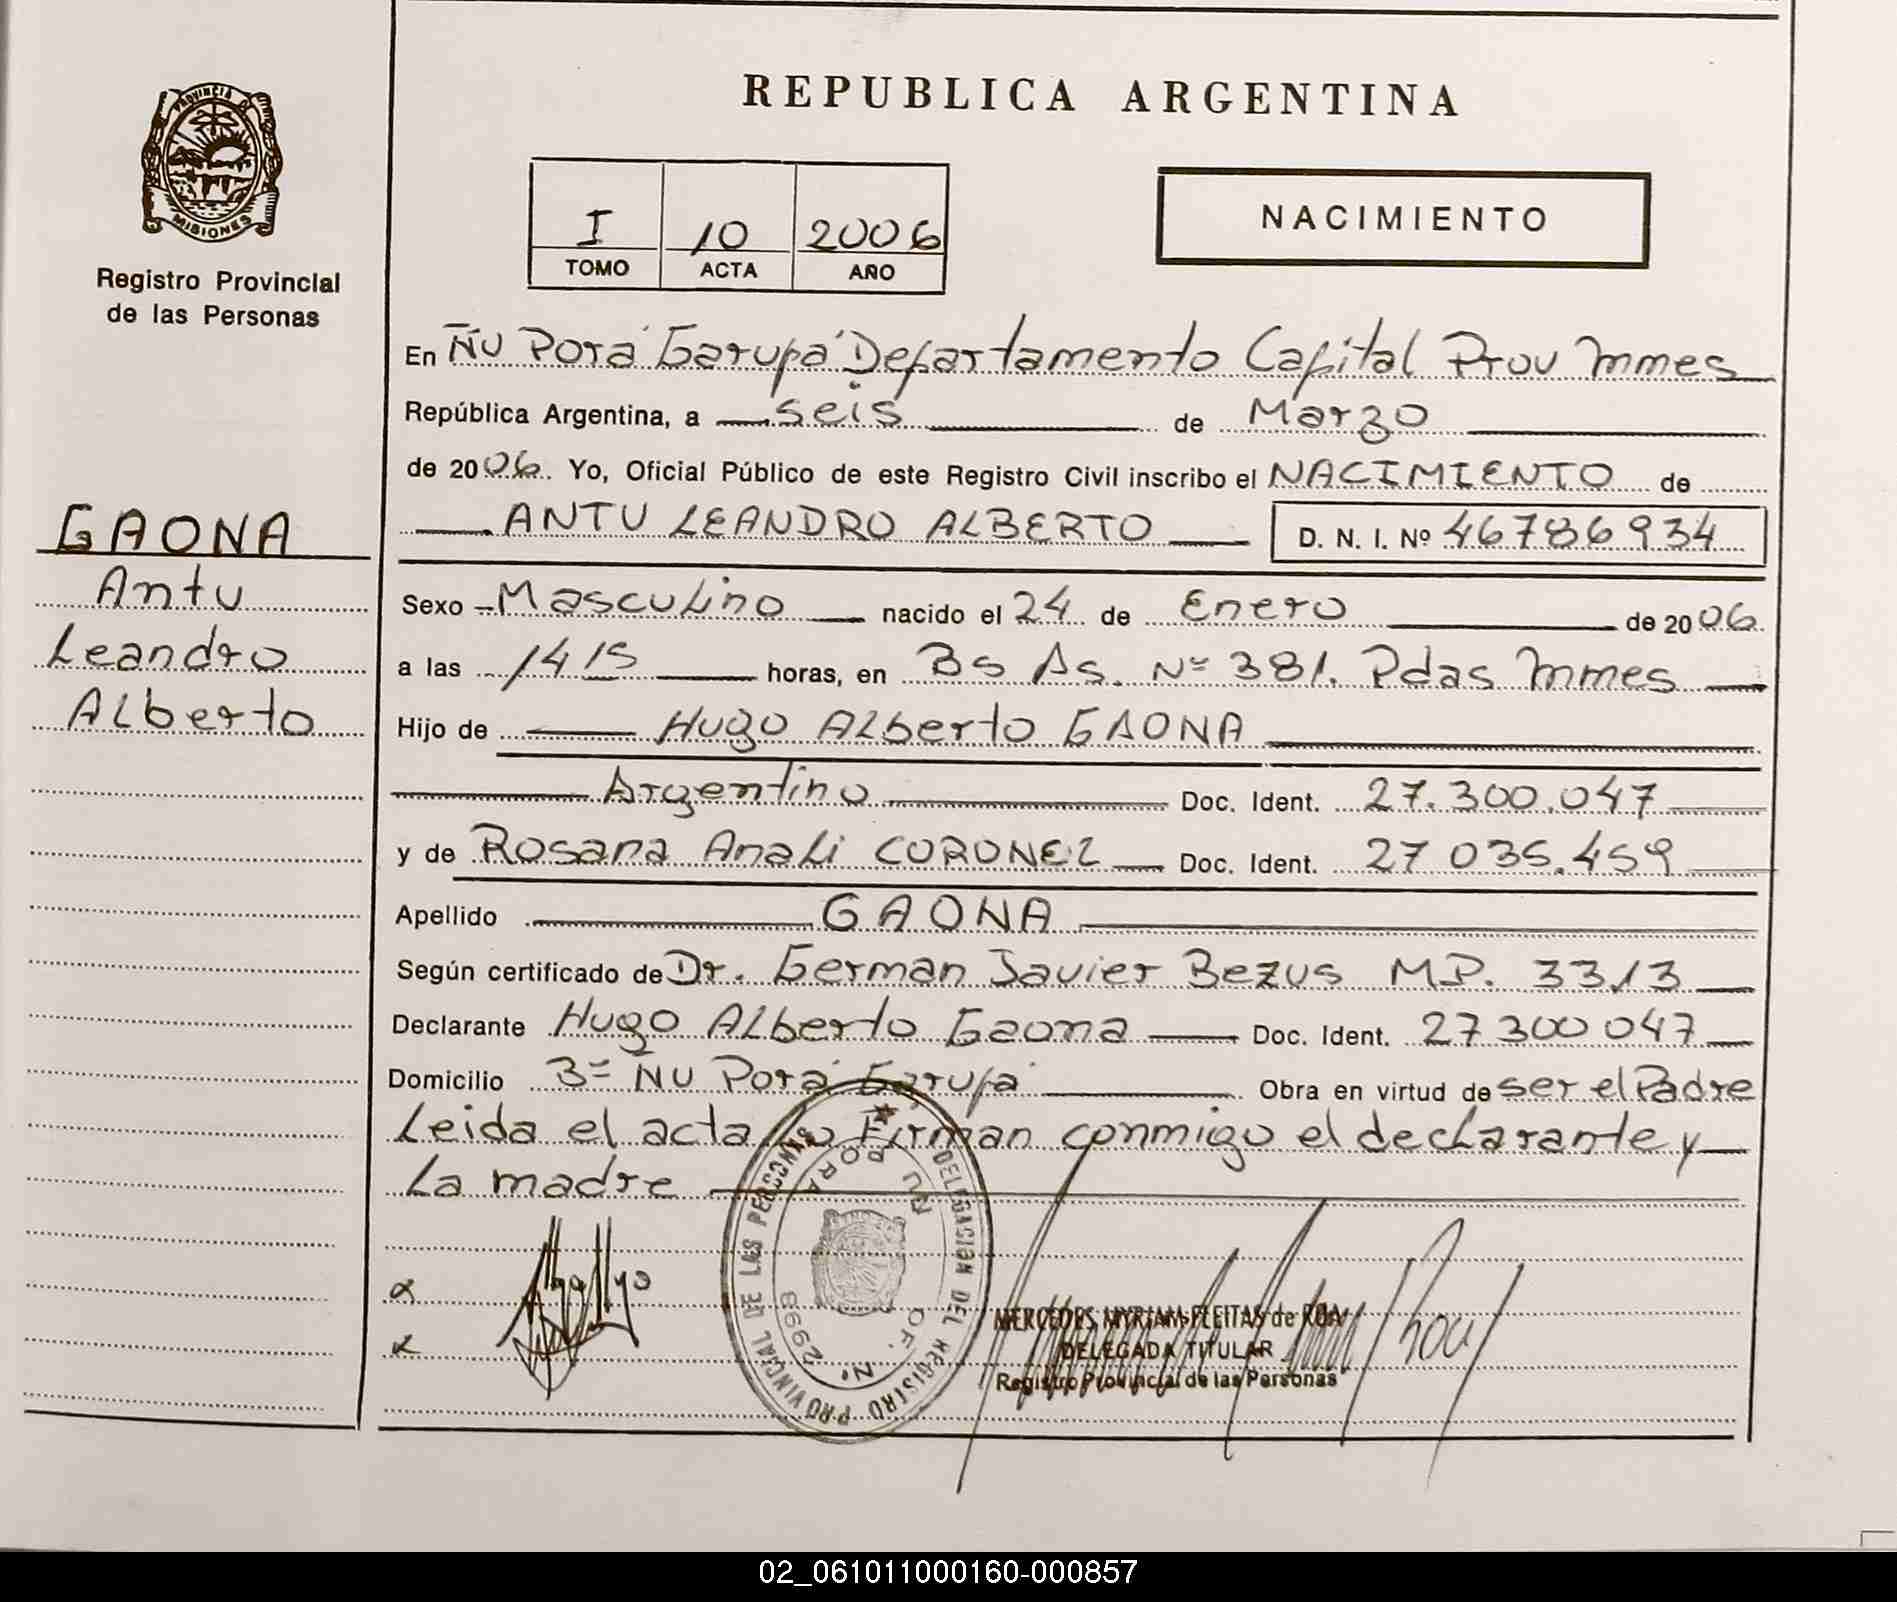 REPUBLICA ARGENTINA
PROVINCIA DE
MISIONES
Registro Provincial
de las Personas
I 10 2006
TOMO ACTA AÑO
NACIMIENTO
GAONA
Antu
Leandro
Alberto
En Ñu Porá Garupá Departamento Capital Prov Mnes
República Argentina, a seis de Marzo
de 2006. Yo, Oficial Público de este Registro Civil inscribo el NACIMIENTO de
ANTU LEANDRO ALBERTO D. N. I. Nº 46786934
Sexo Masculino nacido el 24 de Enero de 2006
a las 14 15 horas, en Bs As. Nº 381. Pdas Mnes
Hijo de Hugo Alberto GAONA
Argentino Doc. Ident. 27.300.047
y de Rosana Anali CORONEL Doc. Ident. 27 035.459
Apellido GAONA
Según certificado de Dr. German Javier Bezus MP. 3313
Declarante Hugo Alberto Gaona Doc. Ident. 27 300 047
Domicilio Bº Ñu Porá Garupá Obra en virtud de ser el Padre
Leida el acta la Firman conmigo el declarante y
La madre
DELEGACION DEL REGISTRO PROVINCIAL DE LAS PERSONAS
ÑU PORA
OF. Nº 2998
MERCEDES MYRIAM FLEITAS de ROA
DELEGADA TITULAR
Registro Provincial de las Personas
02_061011000160-000857